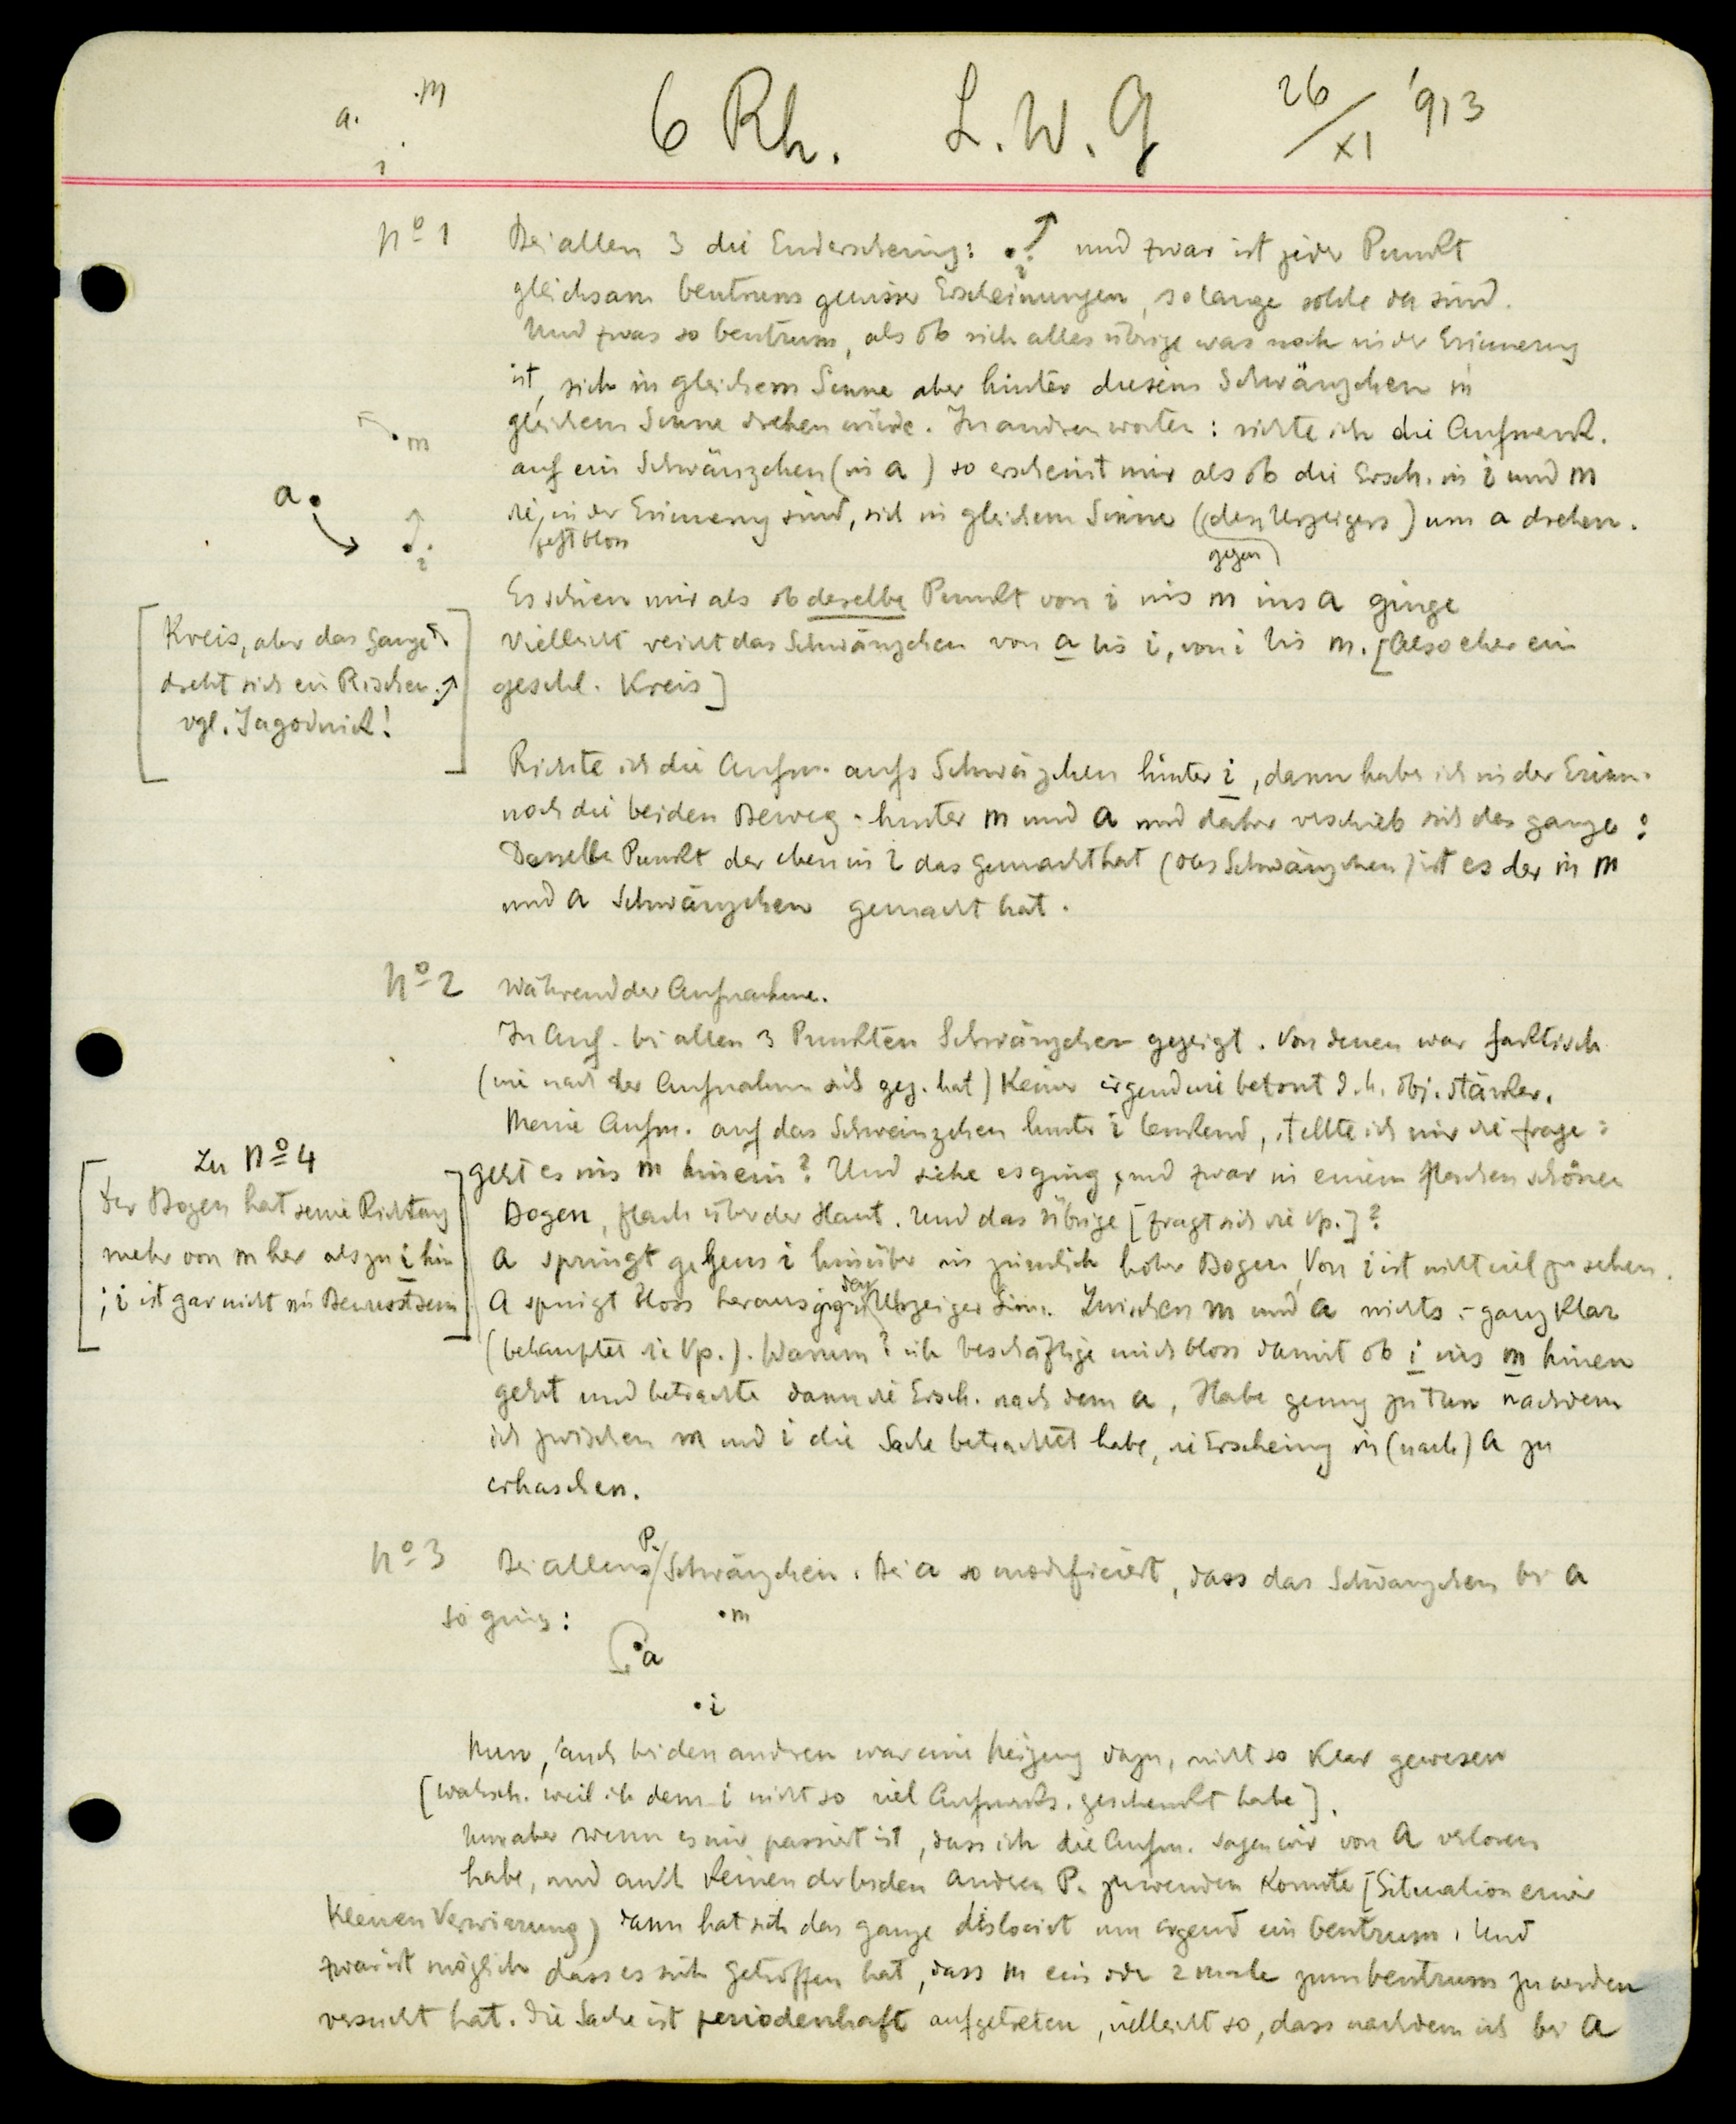 a. .m
i
6 Rh. L. W. G 26/XI '913
No 1 Bei allen 3 die Enderscheinung: und zwar ist jeder Punkt
gleichsam Centrum gewisser Erscheinungen, solange solche da sind.
Und zwar so Centrum, als ob sich alles übrige was noch in der Erinnerung
ist, sich in gleichem Sinne aber hinter diesem Schwänzchen in
gleichem Sinne drehen würde. In andren worten: richte ich die Aufmerk.
auf ein Schwänzchen (in a) so erscheint mir als ob die Ersch. in i und m
die, in der Erinnerung sind, sich in gleichem Sinne (den Urzeigers) um a drehen.
jetzt bloss
gegen
m
a.
i
Es schien mir als ob derselbe Punkt von i ins m ins a ginge
Vielleicht reicht das Schwänzchen von a bis i, von i bis m. [Also eher ein
geschl. Kreis]
[Kreis, aber das ganze
dreht sich ein Bischen.
vgl. Jagodnick!]
Richte ich die Aufm. aufs Schwänzchen hinter i, dann habe ich in der Erinn.
noch die beiden Beweg. hinter m und a und daher verschieb sich das ganze:
Derselbe Punkt der eben in i das gemacht hat (das Schwänzchen) ist es der in m
und a Schwänzchen gemacht hat.
No 2 Während der Aufnahme.
In Anf. bei allen 3 Punkten Schwänzchen gezeigt. Von denen war faktisch
(wie nach der Aufnahme sich gez. hat) Keiner irgendwie betont d.h. obj. stärker.
Meine Aufm. auf das Schwänzchen hinter i lenkend, stellte ich mir die frage:
geht es ins m hinein? Und siehe es ging, und zwar in einem flachen schönen
Bogen, flach über der Haut. Und das übrige [fragt sich die Vp.]?
a springt gegens i hinüber in ziemlich hoher Bogen, Von i ist nicht viel zu sehen.
a springt bloss heraus gegen den Uhrzeiger Sinn. Zwischen m und a nichts - ganz klar
(behauptet die Vp.). Warum? ich beschäftige mich bloss damit ob i ins m hinein
geht und betrachte dann die Ersch. nach dem a, Habe genug zu tun nachdem
ich zwischen m und i die Sache betrachtet habe, die Erscheinung in (nach) a zu
erhaschen.
Zu No 4
[Der Bogen hat seine Richtung
mehr von m her als zu i hin
; i ist gar nicht im Bewusstsein]
No 3 Bei allen 3 P. Schwänzchen. Bei a so modificiert, dass das Schwänzchen bei a
so ging:
.m
a
.i
Nun, auch bei den andren war eine Neigung dazu, nicht so klar gewesen
[wahrsch. weil ich dem i nicht so viel Aufmerks. geschenkt habe].
Nun aber wenn es mir passiert ist, dass ich die Aufm. sagen wir von a verloren
habe, und auch keinen der beiden andren P. zuwenden konnte [Situation einer
kleinen Verwirrung) dann hat sich das ganze dislociert um irgend ein Centrum. Und
zwar ist möglich dass es sich getroffen hat, dass m ein oder 2 male zum Centrum zu werden
versucht hat. Die Sache ist periodenhaft aufgetreten, vielleicht so, dass nachdem ich bei a